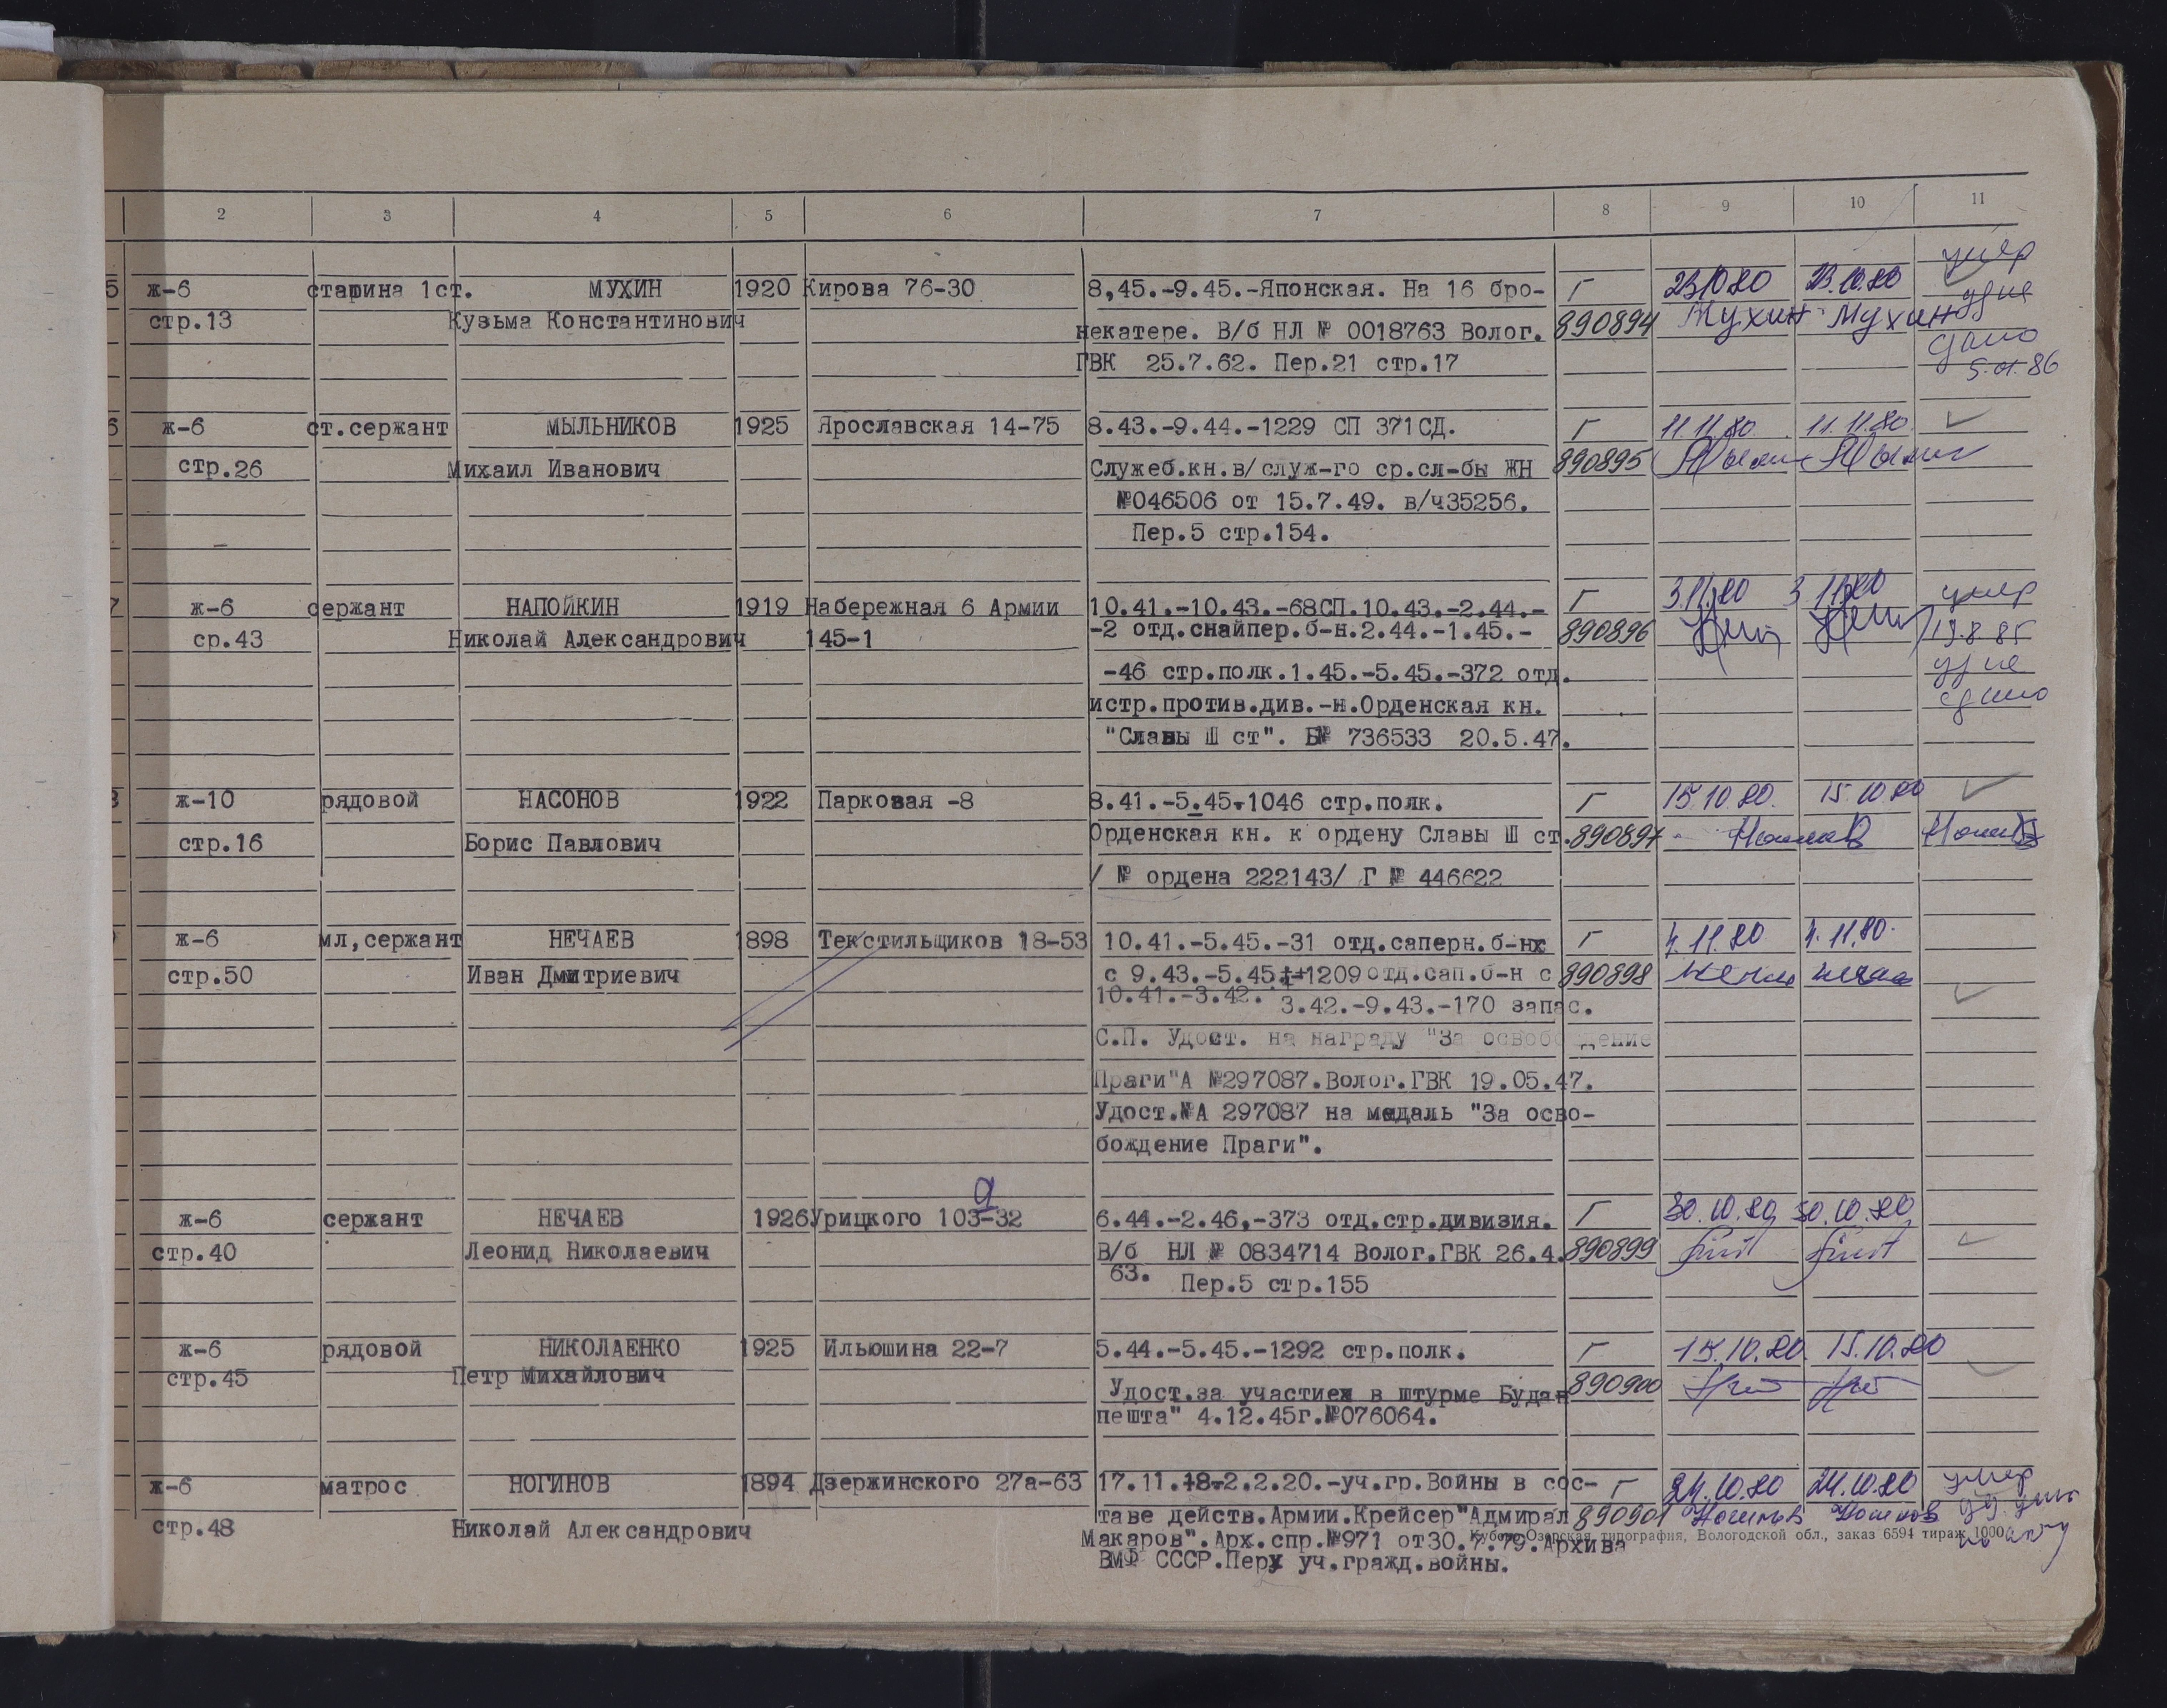 2 3 4 5 6 7 8 9 10 11
умер
5 ж-6 старшина 1ст. МУХИН 1920 Кирова 76-30 8,45.-9.45.-Японская. На 16 бро- Г 23.10.80 23.10.80
стр.13 Кузьма Константинович некатере. В/б НЛ № 0018763 Волог. 890894 Мухин Мухин
ГВК 25.7.62. Пер.21 стр.17 сдано
5.01.86
6 ж-6 ст.сержант МЫЛЬНИКОВ 1925 Ярославская 14-75 8.43.-9.44.-1229 СП 371СД. Г 11.11.80. 11.11.80.
стр.26 Михаил Иванович Служеб.кн.в/служ-го ср.сл-бы ЖН 890895
№046506 от 15.7.49. в/ч35256.
Пер.5 стр.154.
7 ж-6 сержант НАПОЙКИН 1919 Набережная 6 Армии 10.41.-10.43.-68СП.10.43.-2.44.- Г 3.11.80 3.11.80 умер
ср.43 Николай Александрович 145-1 -2 отд.снайпер.б-н.2.44.-1.45.- 890896 19.8.85
-46 стр.полк.1.45.-5.45.-372 отд. уд-ие
истр.против.див.-н.Орденская кн. сдано
"Славы Ш ст". Б№ 736533 20.5.47.
8 ж-10 рядовой НАСОНОВ 1922 Парковая -8 8.41.-5.45.-1046 стр.полк. Г 15.10.80. 15.10.80
стр.16 Борис Павлович Орденская кн. к ордену Славы Ш ст. 890897
/ № ордена 222143/ Г № 446622
9 ж-6 мл,сержант НЕЧАЕВ 1898 Текстильщиков 18-53 10.41.-5.45.-31 отд.саперн.б-нх Г 4.11.80 4.11.80.
стр.50 Иван Дмитриевич с 9.43.-5.45.-1209 отд.сап.б-н с 890898
10.41.-3.42. 3.42.-9.43.-170 запас.
С.П. Удост. на награду "За освобождение
Праги"А №297087.Волог.ГВК 19.05.47.
Удост.№А 297087 на медаль "За осво-
бождение Праги".
а
ж-6 сержант НЕЧАЕВ 1926 Урицкого 103-32 6.44.-2.46,-373 отд.стр.дивизия. Г 30.10.80 30.10.80
стр.40 Леонид Николаевич В/б НЛ № 0834714 Волог.ГВК 26.4. 890899
63. Пер.5 стр.155
ж-6 рядовой НИКОЛАЕНКО 1925 Ильюшина 22-7 5.44.-5.45.-1292 стр.полк. Г 15.10.80. 15.10.80
стр.45 Петр Михайлович Удост.за участиех в штурме Будан 890900
пешта" 4.12.45г.№076064.
ж-6 матрос НОГИНОВ 1894 Дзержинского 27а-63 17.11.18-2.2.20.-уч.гр.Войны в сос- Г 24.10.80 24.10.80 умер
стр.48 Николай Александрович таве действ.Армии.Крейсер"Адмирал 890901 Ногинов Ногинов
Макаров".Арх.спр.№971 от30.7.79.Архива
Кубено-Озерская типография, Вологодской обл., заказ 6594 тираж 1000
ВМФ СССР.Перх уч.гражд.войны.